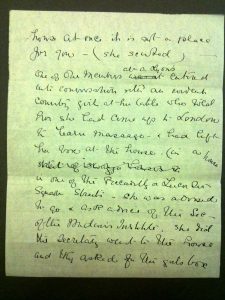 home at once it is not a place
for you - (she scented)
at a Lyons
One of our members entered
into conversation with an evident
country girl at her table who told
her she had come up to London
to learn massage - & had left
her box at the house (in a house
in one of the Piccadilly
Square Streets - She was advised
to go & ask advice of the Sec
of the Institute. She did
The Secretary went to the House
and they asked for the girls box